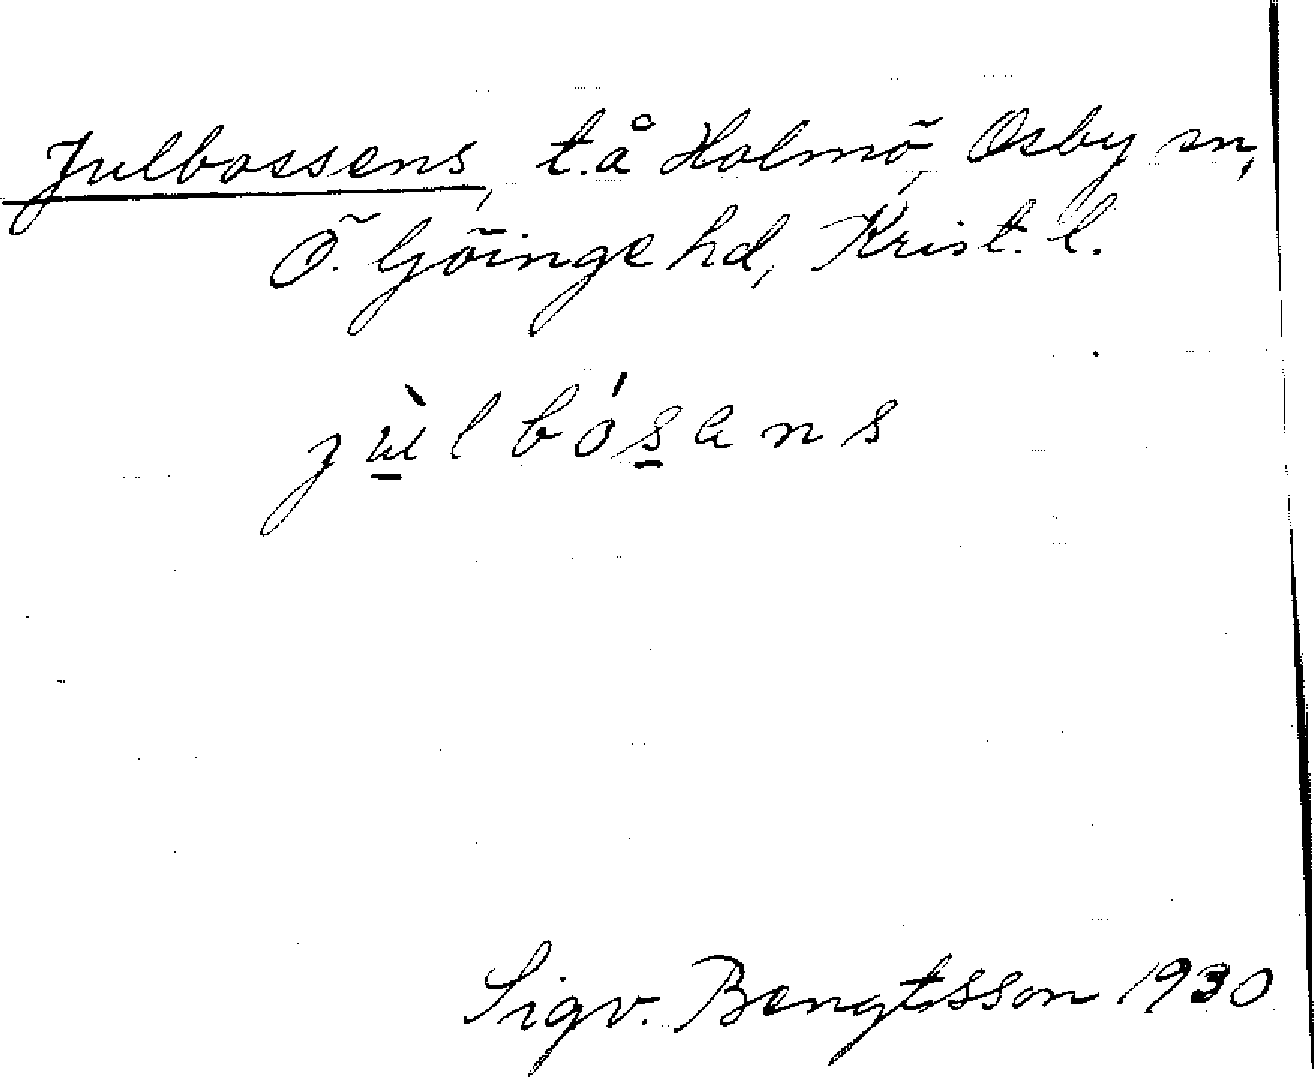 Julbossens, t. å Holmö, Osby sn,
Ö. Göinge hd, Krist. l.
jùlbósans
Sigv. Bengtsson 1930